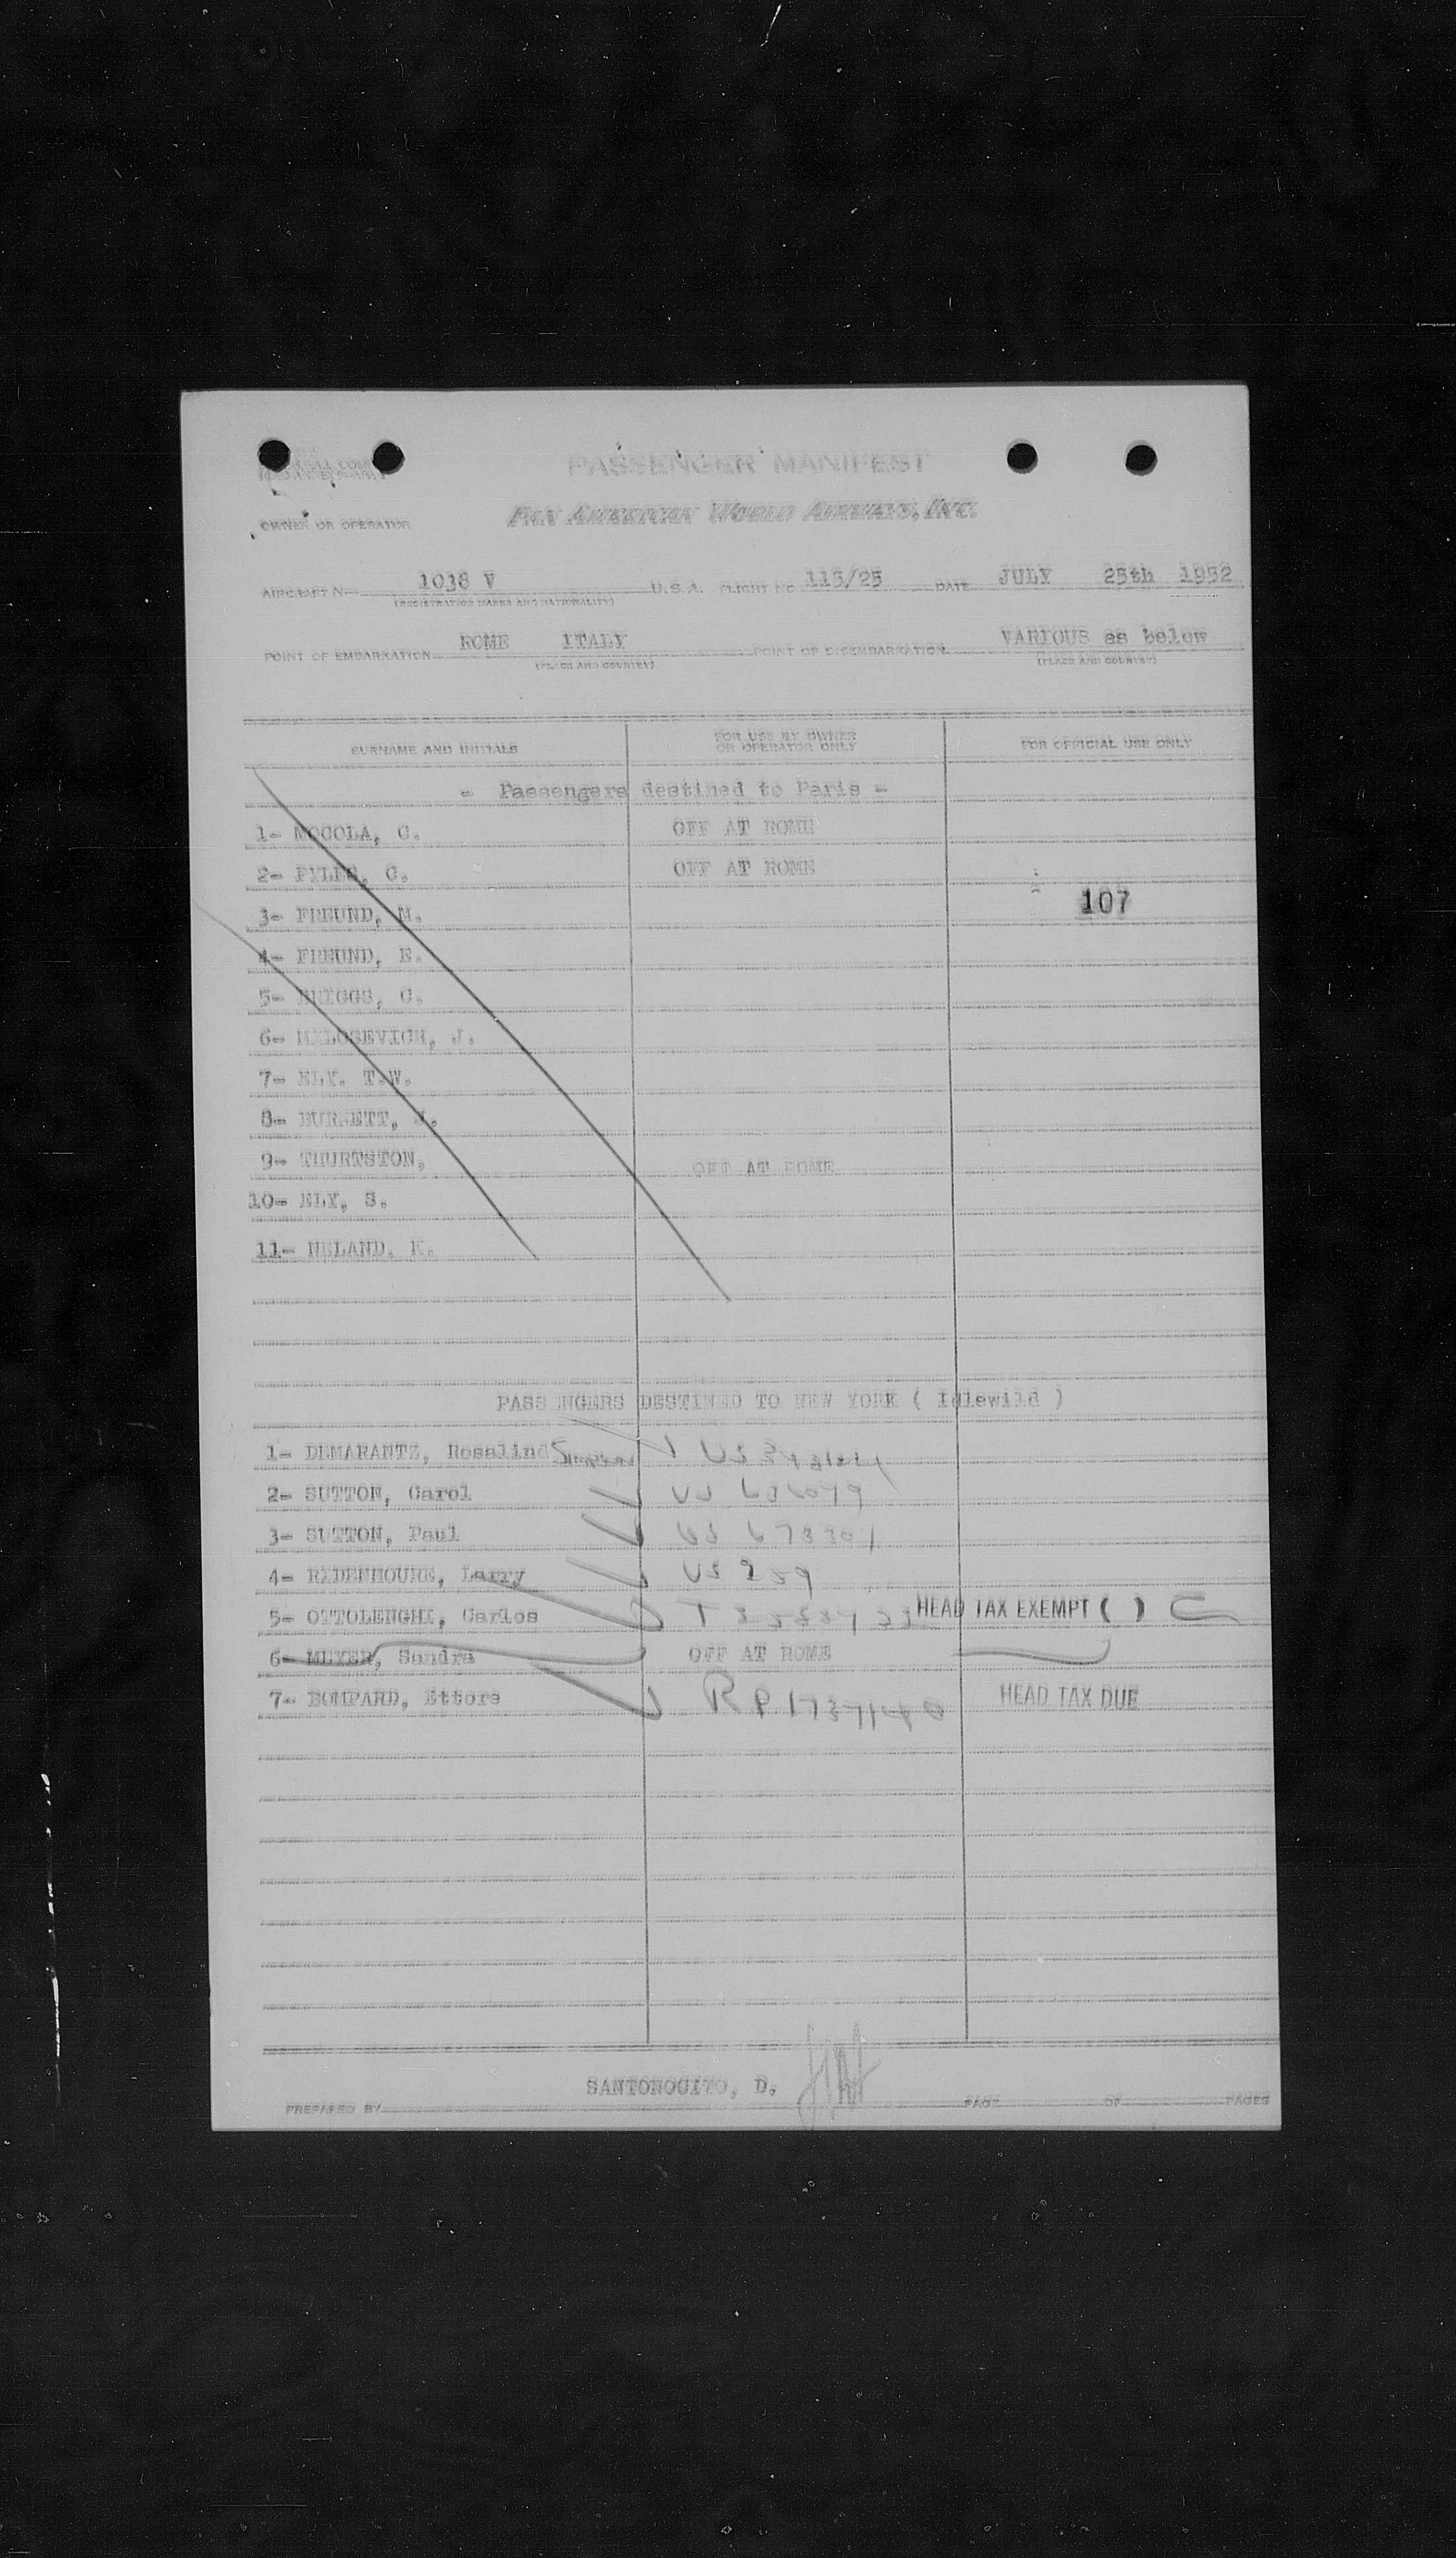 PASSENGER MANIFEST
PAN AMERICAN WORLD AIRWAYS, INC.
OWNER OR OPERATOR
AIRCRAFT N 1038 V U.S.A. FLIGHT NO. 115/25 DATE JULY 25th 1952
(REGISTRATION MARKS AND NATIONALITY)
POINT OF EMBARKATION ROME ITALY POINT OF DISEMBARKATION VARIOUS as below
(PLACE AND COUNTRY) (PLACE AND COUNTRY)
SURNAME AND INITIALS FOR USE BY OWNER OR OPERATOR ONLY FOR OFFICIAL USE ONLY
- Passengers destined to Paris -
1- NOCOLA, C. OFF AT ROME
2- PYLES, G. OFF AT ROME
107
3- FREUND, M.
4- FREUND, E.
5- BRIGGS, C.
6- MILOSEVICH, J.
7- ELY. T.W.
8- BURNETT, J.
9- THURTSTON, OFF AT ROME
10- ELY, S.
11- NELAND. K.
PASS ENGERS DESTINED TO NEW YORK ( Idlewild )
1- DEMARANTZ, Rosalind Simpson US
2- SUTTON, Carol US
3- SUTTON, Paul US
4- RIDENHOURE, Larry US 259
5- OTTOLENGHI, Carlos T HEAD TAX EXEMPT ( )
6- MEYER, Sandra OFF AT ROME
7- BOMPARD, Ettore RP HEAD TAX DUE
SANTONOCITO, D.
PREPARED BY PAGE OF PAGES